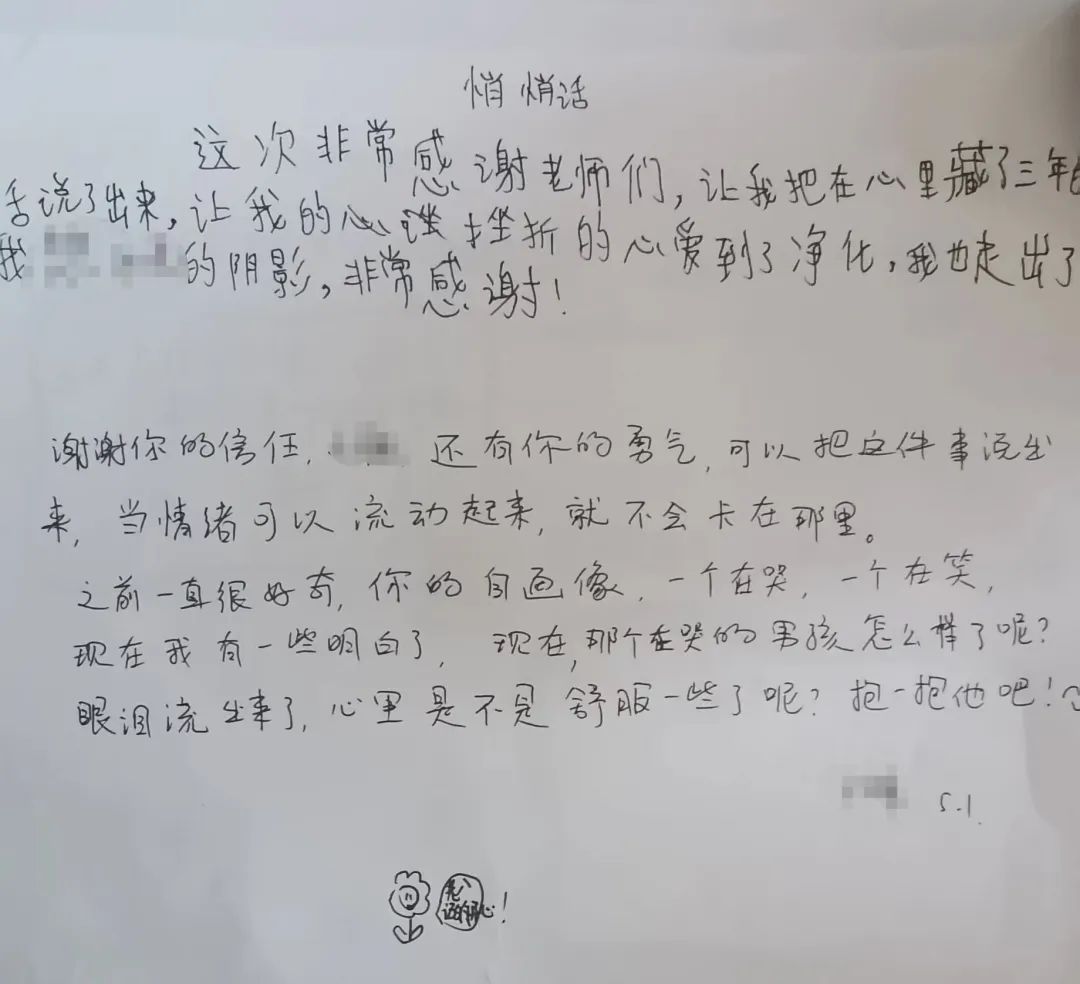 悄悄话
这次非常感谢老师们,让我把在心里藏了三年
话说了出来,让我的心理挫折的心爱到了净化,我也走出了
我 的阴影,非常感谢!
谢谢你的信任, 还有你的勇气,可以把这件事说出
来,当情绪可以流动起来,就不会卡在那里。
之前一直很好奇,你的自画像,一个在哭,一个在笑,
现在我有一些明白了,现在,那个在哭的男孩怎么样了呢?
眼泪流出来了,心里是不是舒服一些了呢?抱一抱他吧!
5.1.
心!